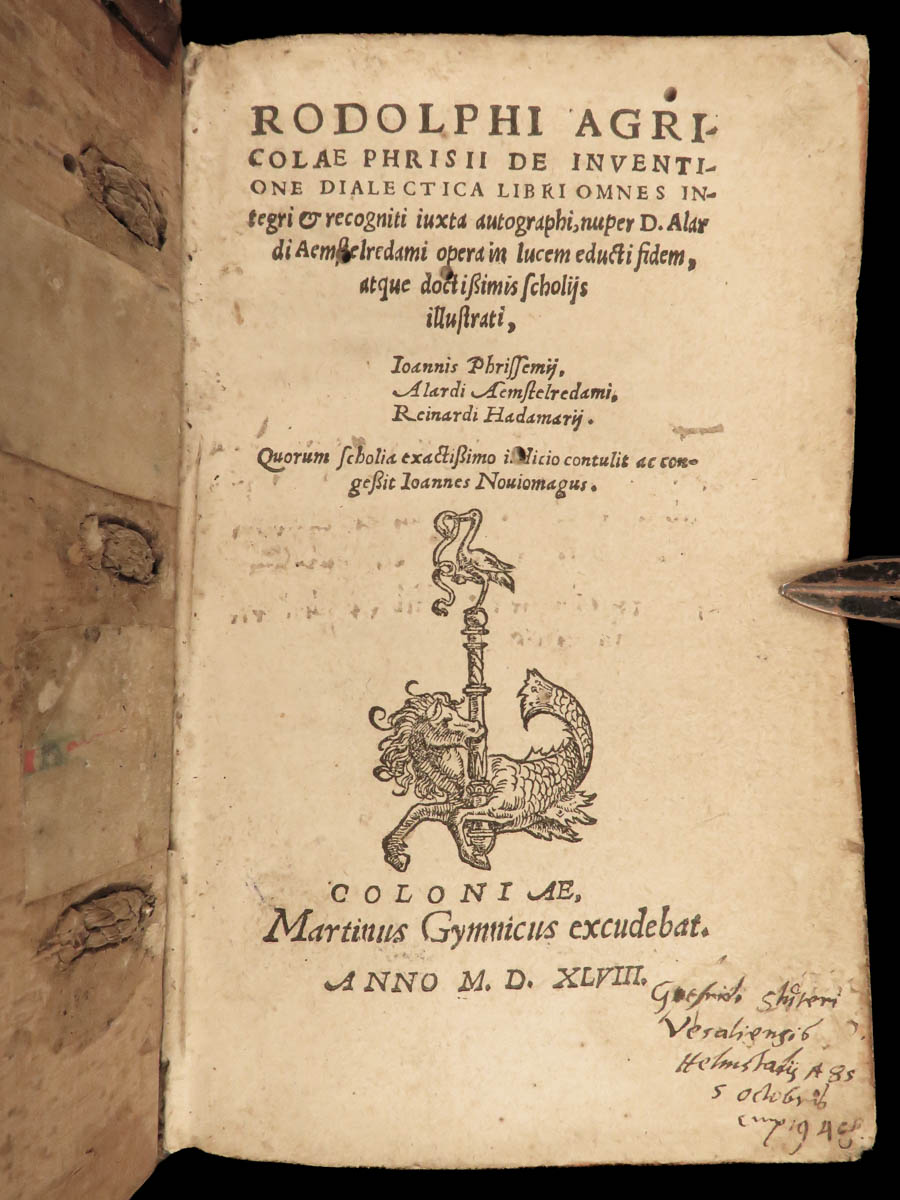 RODOLPHI AGRI-
COLAE PHRISII DE INVENTI-
ONE DIALECTICA LIBRI OMNES IN-
tegri & recogniti iuxta autographi, nuper D. Alar
di Aemstelredami opera in lucem educti fidem,
atque doctißimis scholijs
illustrati,
Ioannis Phrissemij.
Alardi Aemstelredami.
Reinardi Hadamarij.
Quorum scholia exactißimo iudicio contulit ac con-
geßit Ioannes Nouiomagus.
COLONIAE,
Martinus Gymnicus excudebat.
ANNO M. D. XLVIII.
Gotfridi Shüteri
Vesaliensis
Helmstadij A 85
5 octobris